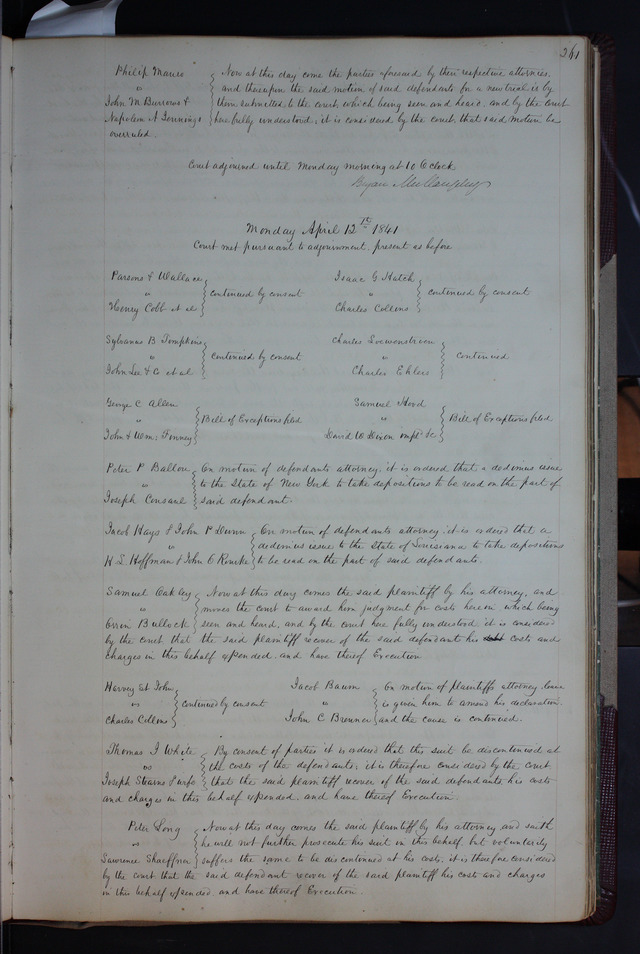 261
Philip Mauro Now at this day come the parties aforesaid by their respective attornies,
vs and thereupon the said motion of said defendants for a new trial is by
John M Burrows & them submitted to the court, which being seen and heard, and by the court
Napoleon A Jennings here fully understood; it is considered by the court, that said motion be
overruled.
Court adjourned until Monday morning at 10 O'clock
Bryan Mullanphy
Monday April 12th 1841
Court met pursuant to adjournment, present as before
Parsons & Wallace
vs continued by consent
Henry Cobb et al
Isaac G Hatch
vs continued by consent
Charles Collins
Sylvanus B Tompkins
vs continued by consent
John Lee & Co et al
Charles
vs continued
Charles Ehlers
George C Allen
vs Bill of Exceptions filed
John & Wm: Finney
Samuel Hord
vs Bill of Exceptions filed
David W Dixon impl &c
Peter P Ballou On motion of defendants attorney, it is ordered that a dedimus issue
vs to the State of New York to take depositions to be read on the part of
Joseph said defendant.
Jacob Hays & John P Dunn On motion of defendants attorney, it is ordered that a
vs dedimus issue to the State of Louisiana to take depositions
H L Hoffman & John O Rourke to be read on the part of said defendants.
Samuel Oakley Now at this day comes the said plaintiff by his attorney, and
vs moves the court to award him judgment for costs herein which being
Orrin Bullock seen and heard, and by the court here fully understood it is considered
by the court that the said plaintiff recover of the said defendant his costs and
charges in this behalf expended, and have thereof Execution
Harvey St John
vs continued by consent
Charles Collins
Jacob Baum On motion of plaintiffs attorney, leave
vs is given him to amend his declaration
John C Brenner and the cause is continued.
Thomas J White By consent of parties it is ordered that this suit be discontinued at
vs the costs of the defendants; it is therefore considered by the court
Joseph Stearns & wife that the said plaintiff recover of the said defendants his costs
and charges in this behalf expended, and have thereof Execution.
Peter Long Now at this day comes the said plaintiff by his attorney and saith
vs he will not further prosecute his suit in this behalf but voluntarily
Lawrence Shaeffner suffers the same to be discontinued at his costs; it is therefore considered
by the court that the said defendant recover of the said plaintiff his costs and charges
in this behalf expended, and have thereof Execution.